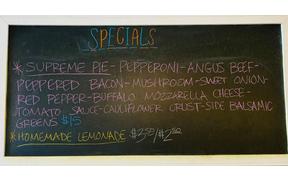 SPECIALS
* SUPREME PIE - PEPPERONI - ANGUS BEEF -
PEPPERED BACON - MUSHROOM - SWEET ONION -
RED PEPPER - BUFFALO MOZZARELLA CHEESE -
TOMATO SAUCE - CAULIFLOWER CRUST - SIDE BALSAMIC
GREENS $15
* HOMEMADE LEMONADE